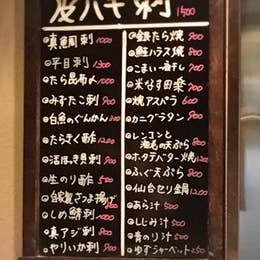 皮ハギ刺 1500
真鯛刺 1000
平目刺 1300
たら昆布〆 1000
みずたこ刺 900
白魚のぐんかん
たらきく酢 1200
活ほっき貝刺 900
生のり酢 550
自家製さつま揚げ
しめ鯖刺
真アジ刺 900
やりいか刺 800
銀たら焼 900
鮭ハラス焼 800
こまい一夜干し 700
米なす田楽 700
焼アスパラ 600
カニグラタン 900
レンコンと
海老の天ぷら 800
ホタテバター焼 1200
ふぐ天ぷら 800
仙台セリ鍋 1200
あら汁 500
しじみ汁 500
青のり汁 500
ゆずシャーベット